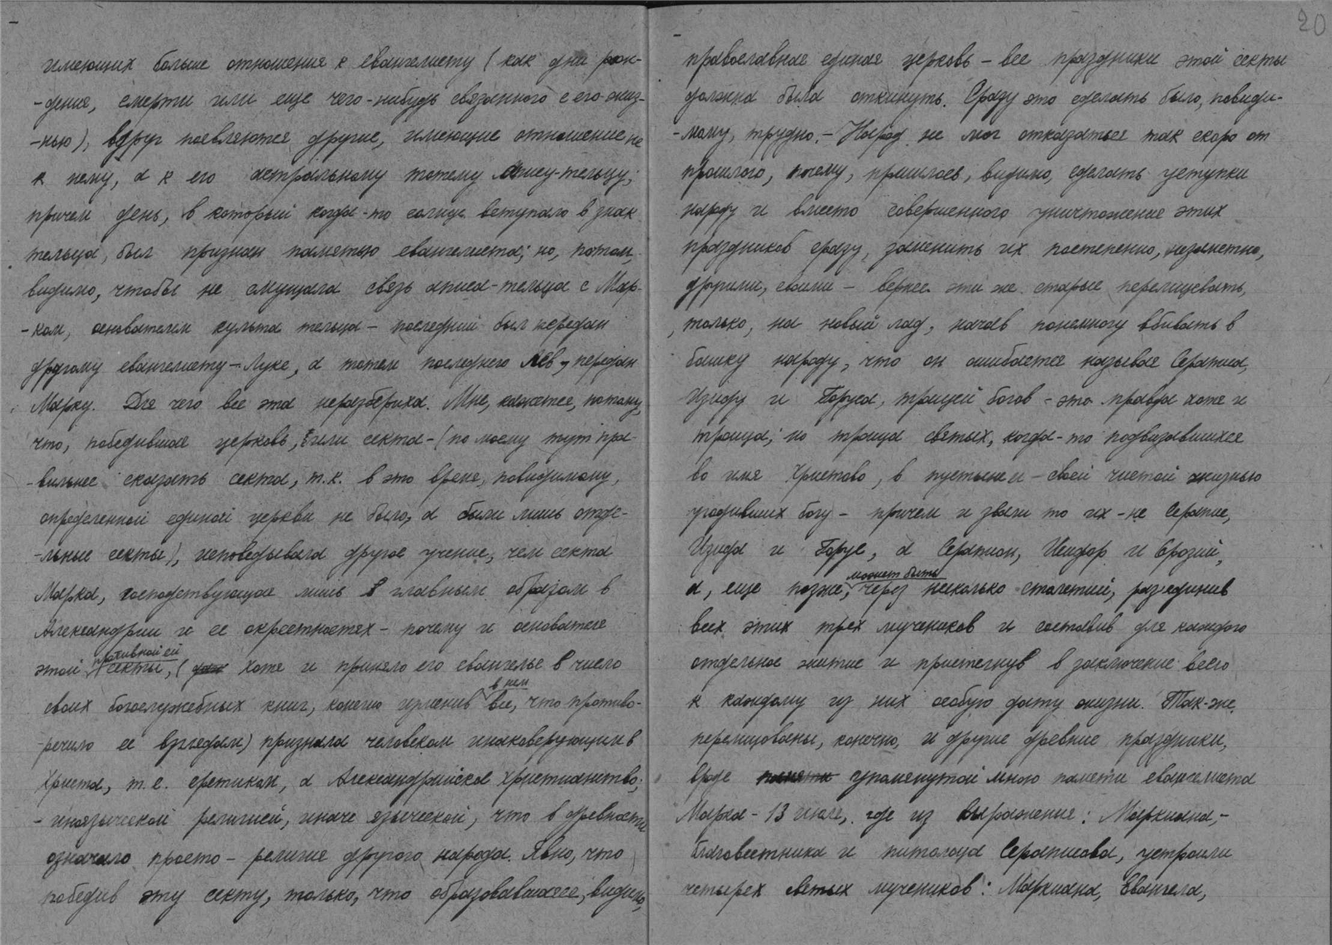 20
имеющих больше отношения к евангелисту (как дни рож-
-дения, смерти или еще чего-нибудь связанного с его жиз-
-нью), вдруг появляются другие, имеющие отношение не
к нему, а к его астральному тотему Апису-тельцу;
причем день, в который когда-то солнце вступало в знак
тельца, был признан памятью евангелиста; но, потом,
видимо, чтобы не смущала связь аписа-тельца с Мар-
-ком, основателем культа тельца – последний был передан
другому евангелисту – Луке, а тотем последнего лев, передан
Марку. Для чего вся эта неразбериха. Мне, кажется, потому,
что, победившая церковь, или секта – (по моему тут пра-
-вильнее сказать секта, т.к. в это время, повидимому,
определенной единой церкви не было, а были лишь отде-
-льные секты), исповедывала другое учение, чем секта
Марка, господствующая лишь в главным образом в
Александрии и ее окрестностях – почему и основателя
этой противной ей секты, (хотя и приняла его евангелье в число
своих богослужебных книг, конечно изменив в нем все, что противо-
-речило ее взглядам) признала человеком инаковерующим в
Христа, т.е. еретиком, а Александрийское христианство,
- иноязыческой религией, иначе языческой, что в древности
означало просто – религия другого народа. Явно, что
победив эту секту, только, что образовавшаяся, видимо,
православная единая церковь – все праздники этой секты
должна была откинуть. Сразу это сделать было, повиди-
-мому, трудно. – Народ не мог отказаться так скоро от
прошлого, почему, пришлось, видимо, сделать уступки
народу и вместо совершенного уничтожения этих
праздников сразу, заменить их постепенно, незаметно,
другими, своими – вернее эти же старые перелицевать,
только, на новый лад, начав понемногу вбивать в
башку народу, что он ошибается называя Сераписа,
Изиду и Горуса, троицей богов – это правда хотя и
троица; но троица святых, когда-то подвизавшихся
во имя Христово, в пустыне и – своей чистой жизнью
угодивших богу – причем и звали то их – не Серапис,
Изида и Горус, а Серапион, Исидор и
а, еще позже, может быть через несколько столетий, разъединив
всех этих трех мучеников и составив для каждого
отдельное житие и пристегнув в заключение всего
к каждому из них особую дату жизни. Так-же,
перелицованы, конечно, и другие древние праздники,
вроде упомянутой мною памяти евангелиста
Марка – 13 июля, где из выражения: Маркиана, –
благовестника и питомца Сераписова, устроили
четырех святых мучеников: Маркиана, Евангела,